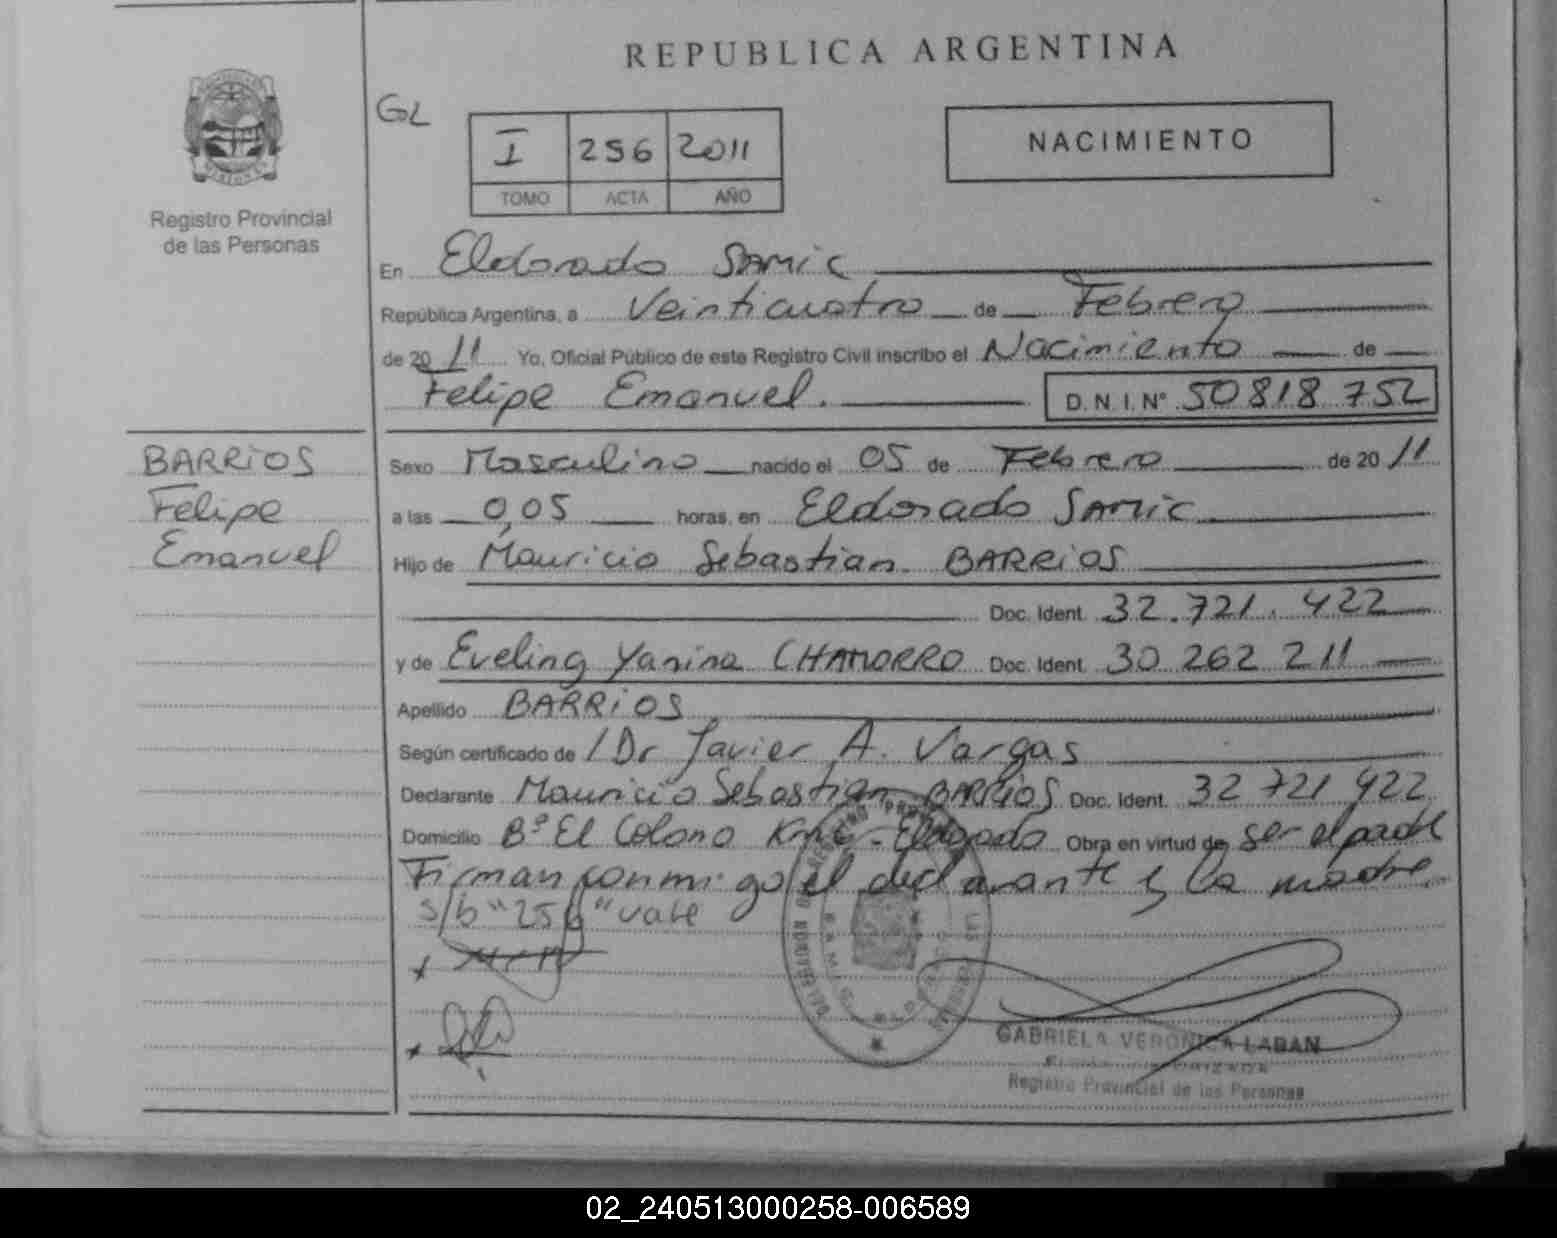 REPUBLICA ARGENTINA
GL
I 256 2011
TOMO ACTA AÑO
NACIMIENTO
Registro Provincial
de las Personas
En Eldorado SAMIC
República Argentina, a Veinticuatro de Febrero
de 2011 Yo, Oficial Público de este Registro Civil inscribo el Nacimiento de
Felipe Emanuel. D. N. I. N° 50818752
BARRIOS
Felipe
Emanuel
Sexo Masculino nacido el 05 de Febrero de 2011
a las 0,05 horas, en Eldorado SAMIC
Hijo de Mauricio Sebastian BARRIOS
Doc. Ident. 32.721.422
y de Eveling Yanina CHAMORRO Doc. Ident. 30 262 211
Apellido BARRIOS
Según certificado de /Dr Javier A. Vargas
Declarante Mauricio Sebastian BARRIOS Doc. Ident. 32 721 422
Domicilio B° El Colono Km - Eldorado Obra en virtud de ser el padre
Firman conmigo el declarante y la madre
s/b "256" vale
GABRIELA VERONICA LABAN
Registro Provincial de las Personas
02_240513000258-006589